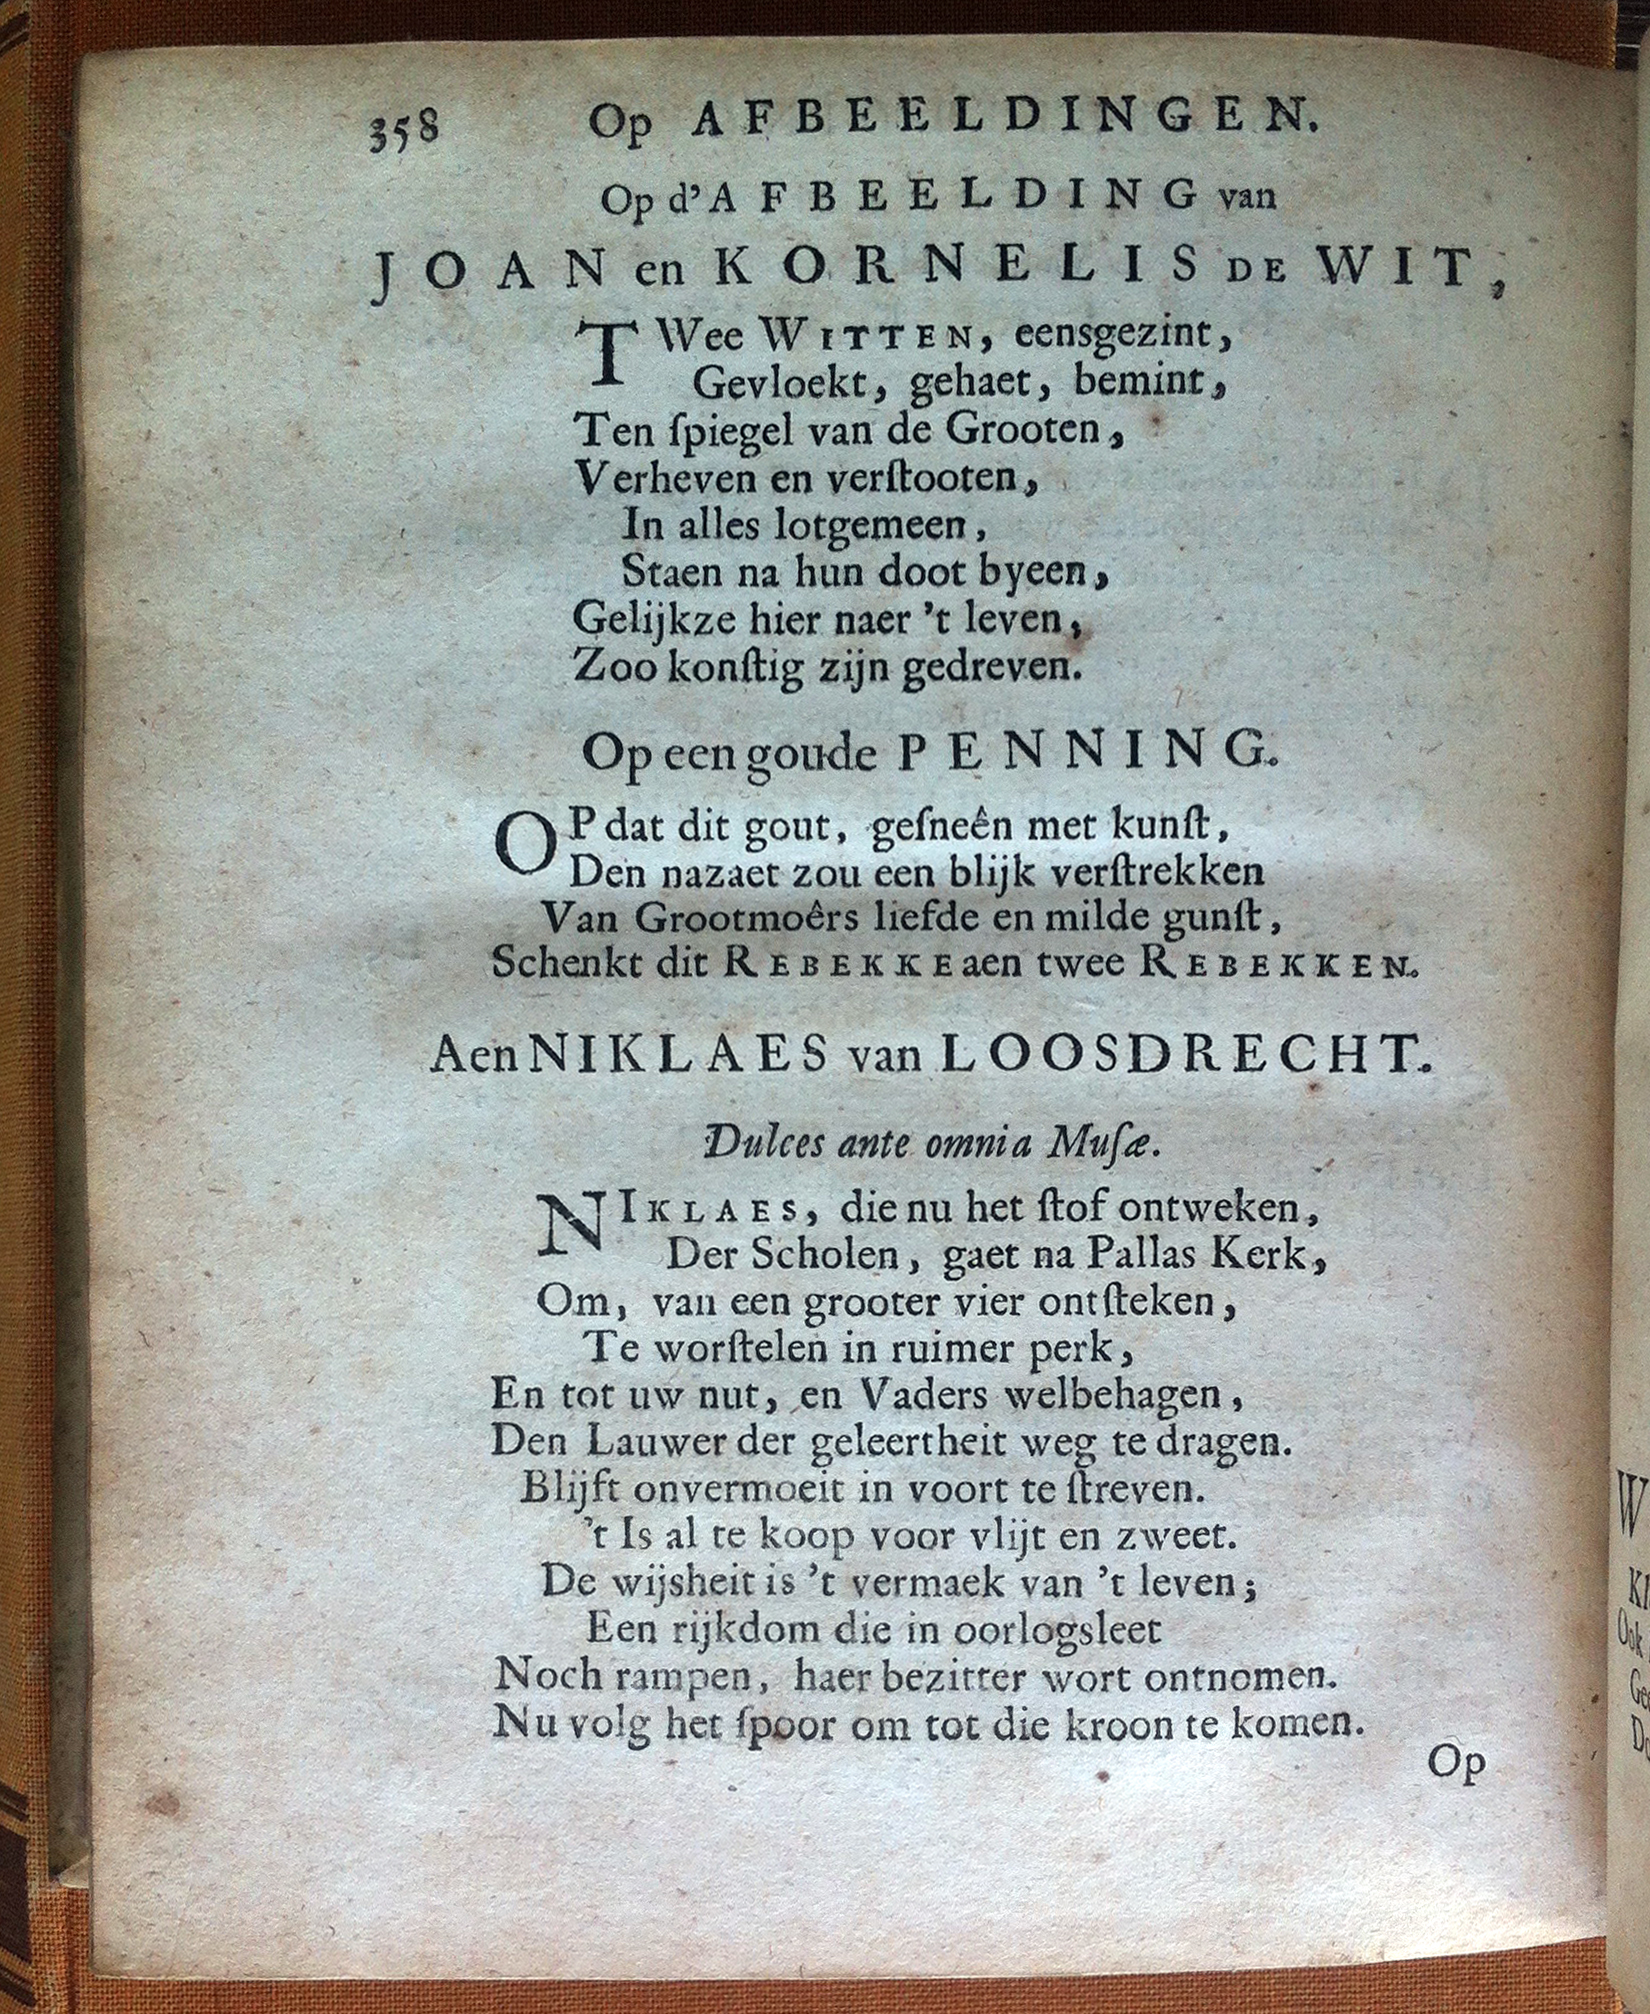 358 Op AFBEELDINGEN.
Op d'AFBEELDING van
JOAN en KORNELIS DE WIT,
TWee WITTEN, eensgezint,
Gevloekt, gehaet, bemint,
Ten ſpiegel van de Grooten,
Verheven en verſtooten,
In alles lotgemeen,
Staen na hun doot byeen,
Gelijkze hier naer 't leven,
Zoo konſtig zijn gedreven.
Op een goude PENNING.
OP dat dit gout, geſneên met kunſt,
Den nazaet zou een blijk verſtrekken
Van Grootmoêrs liefde en milde gunſt,
Schenkt dit REBEKKE aen twee REBEKKEN.
Aen NIKLAES van LOOSDRECHT.
Dulces ante omnia Muſæ.
NIKLAES, die nu het ſtof ontweken,
Der Scholen, gaet na Pallas Kerk,
Om, van een grooter vier ontſteken,
Te worſtelen in ruimer perk,
En tot uw nut, en Vaders welbehagen,
Den Lauwer der geleertheit weg te dragen.
Blijft onvermoeit in voort te ſtreven.
't Is al te koop voor vlijt en zweet.
De wijsheit is 't vermaek van 't leven;
Een rijkdom die in oorlogsleet
Noch rampen, haer bezitter wort ontnomen.
Nu volg het ſpoor om tot die kroon te komen.
Op